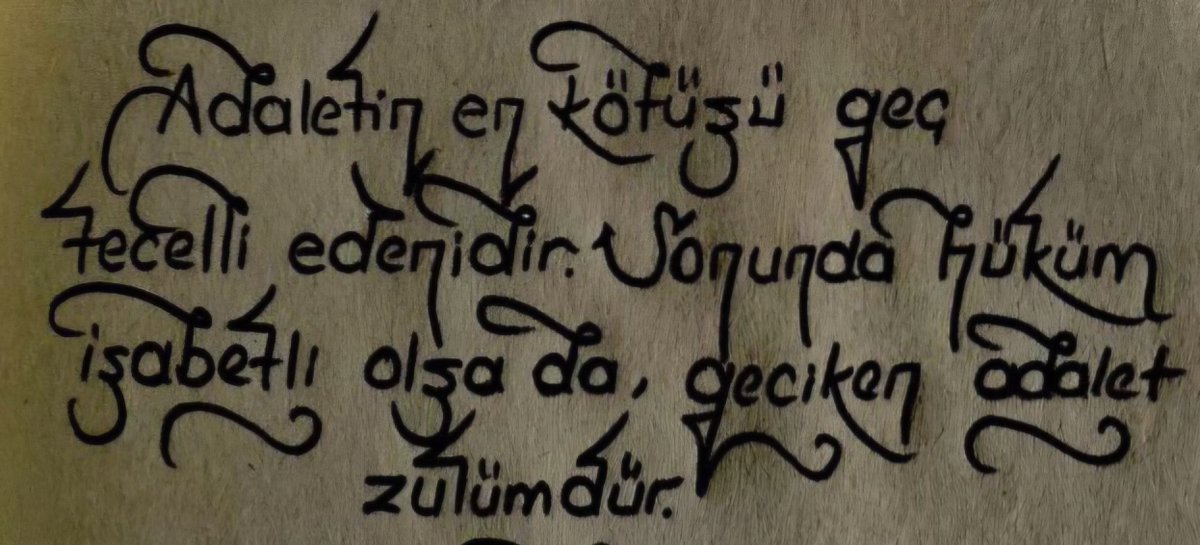 Adaletin en kötüsü geç
tecelli edenidir. Sonunda hüküm
isabetli olsa da, geciken adalet
zulümdür.